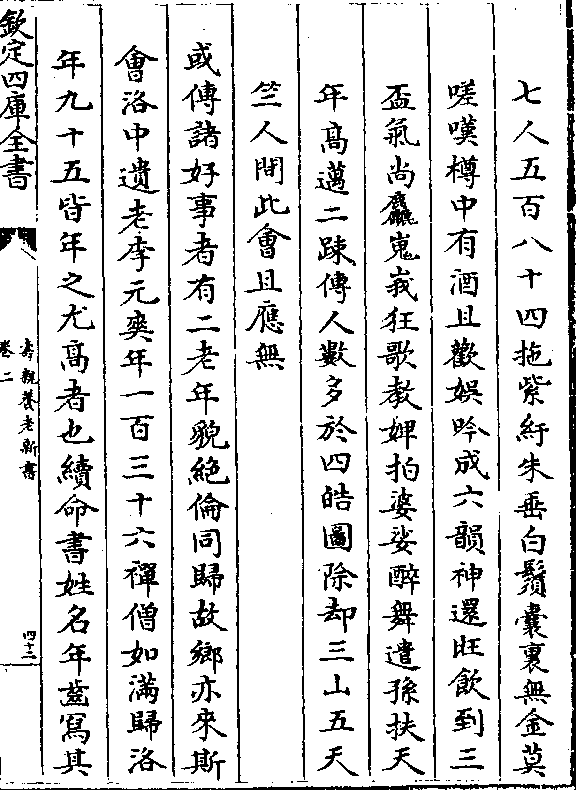 七人五百八十四拖紫紆朱垂白鬚囊裏無金莫
嗟嘆樽中有酒且歡娱吟成六韻神還旺飲到三
盃氣尚麤嵬峩狂歌教婢拍婆娑醉舞遣孫扶天
年髙邁二踈傳人數多於四皓圖除却三山五天
竺人間此會且應無
或傳諸好事者有二老年貌絶倫同歸故鄉亦來斯
㑹洛中遺老李元爽年一百三十六禪僧如滿歸洛
年九十五皆年之尤髙者也續命書姓名年齒寫其
欽定四庫全書
壽親養老新書
卷二
四十三